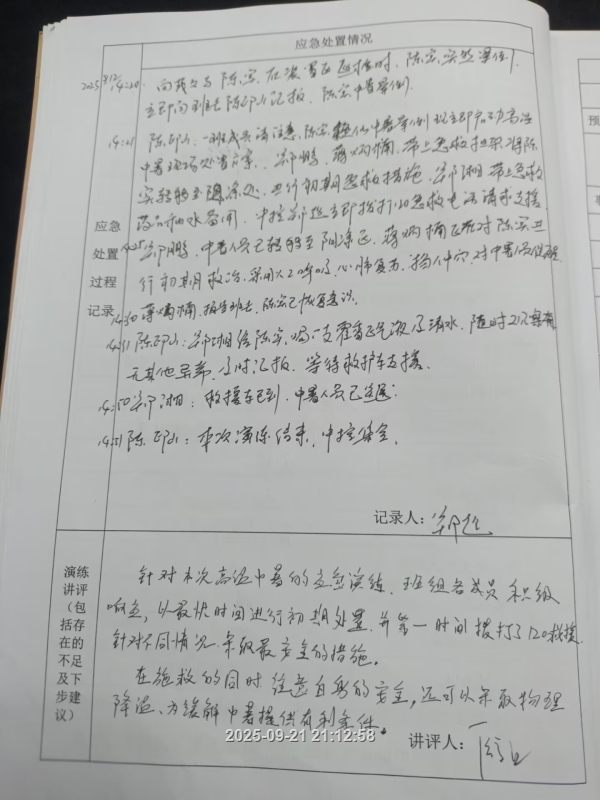 应急处置情况
应急处置过程记录
2025 9/12 14:20. 向 陈宗 在装置区巡检时, 陈宗突然晕倒,
立即向班长陈印山汇报, 陈宗中暑晕倒.
14:21 陈印山: 一班成员请注意, 陈宗 中暑晕倒 现立即启动高温
中暑现场处置方案. 郑鹏, 蒋炳楠, 带上急救 将陈
宗转移至阴凉处, 进行初期急救措施, 郑湘 带上急救
药品和水备用, 中控郑 立即拨打120急救电话请求支援
14:25 郑鹏: 中暑人员已转移至阴凉区, 蒋炳楠正在对陈宗进
行初期救治, 采用人工呼吸, 心肺复苏, 掐仁中穴, 对中暑人员
14:30 蒋炳楠, 报告班长, 陈宗已恢复意识.
14:31 陈印山: 郑湘给陈宗喝一支藿香正气液及清水, 随时观察有
无其他异常, 及时汇报, 等待救护车支援.
14:50 郑湘: 救援车已到, 中暑人员已
14:51 陈印山: 本次演练结束, 中控集合.
记录人: 郑
演练讲评(包括存在的不足及下步建议)
针对本次高温中暑的应急演练, 班组各成员积极
响应, 以最快时间进行初期处置, 并第一时间拨打了120救援,
针对不同情况采取最安全的措施。
在施救的同时注意自身的安全, 还可以采取物理
降温, 为缓解中暑提供有利条件。
讲评人:
2025-09-21 21:12:58